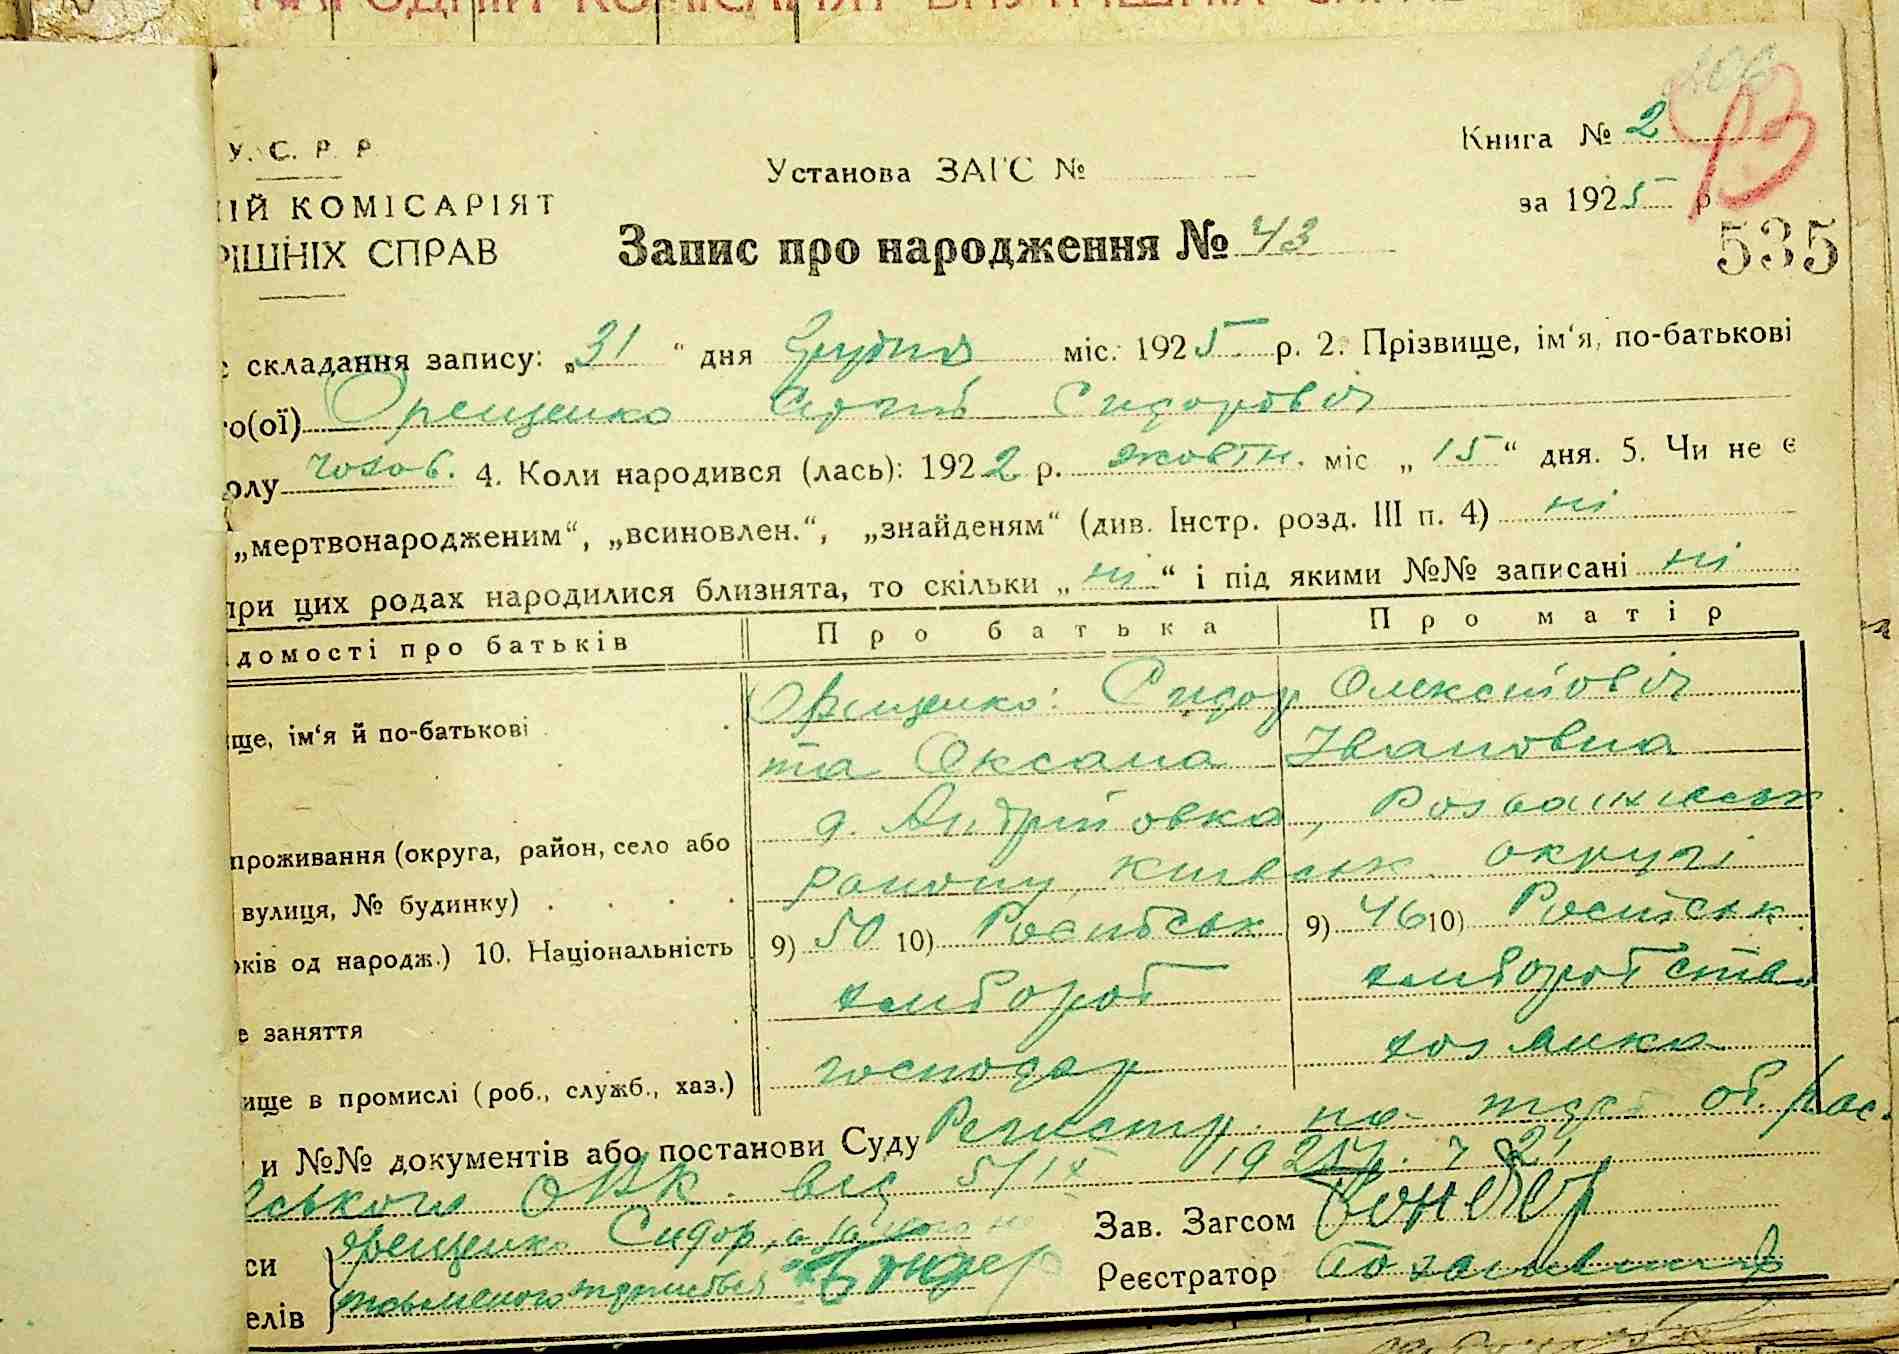 НАРОДНІЙ КОМІСАРІЯТ ВНУТРІШНІХ СПРАВ
У. С. Р. Р.
Книга № 2
Установа ЗАГС №
ІЙ КОМІСАРІЯТ
за 1925 р
РІШНІХ СПРАВ
Запис про народження № 43
535
с складання запису: „31“ дня Грудня міс. 1925 р. 2. Прізвище, ім‘я, по-батькові
го(ої) Орещенко Сидорович
олу чолов. 4. Коли народився (лась): 1922 р. жовтн. міс „15“ дня. 5. Чи не є
„мертвонародженим“, „всиновлен.“, „знайденям“ (див. Інстр. розд. III п. 4) ні
при цих родах народилися близнята, то скільки „ні“ і під якими №№ записані ні
ідомості про батьків Про батька Про матір
ище, ім‘я й по-батькові Орещенко: Сидор Олексійович
та Оксана Івановна
проживання (округа, район, село або д. Андрійовка, Розважівськ.
вулиця, № будинку) району, Київськ. округі
оків од народж.) 10. Національність 9) 50 10) Російськ 9) 46 10) Російськ.
е заняття хлібороб хлібороб ство
ище в промислі (роб., служб., хаз.) господар хозяйка
и №№ документів або постанови Суду Регистр. на
ського ОВК. від 5/IX 192
си Орещенко Сидор, а за його не
елів Бондер
Зав. Загсом Бондер
Реєстратор